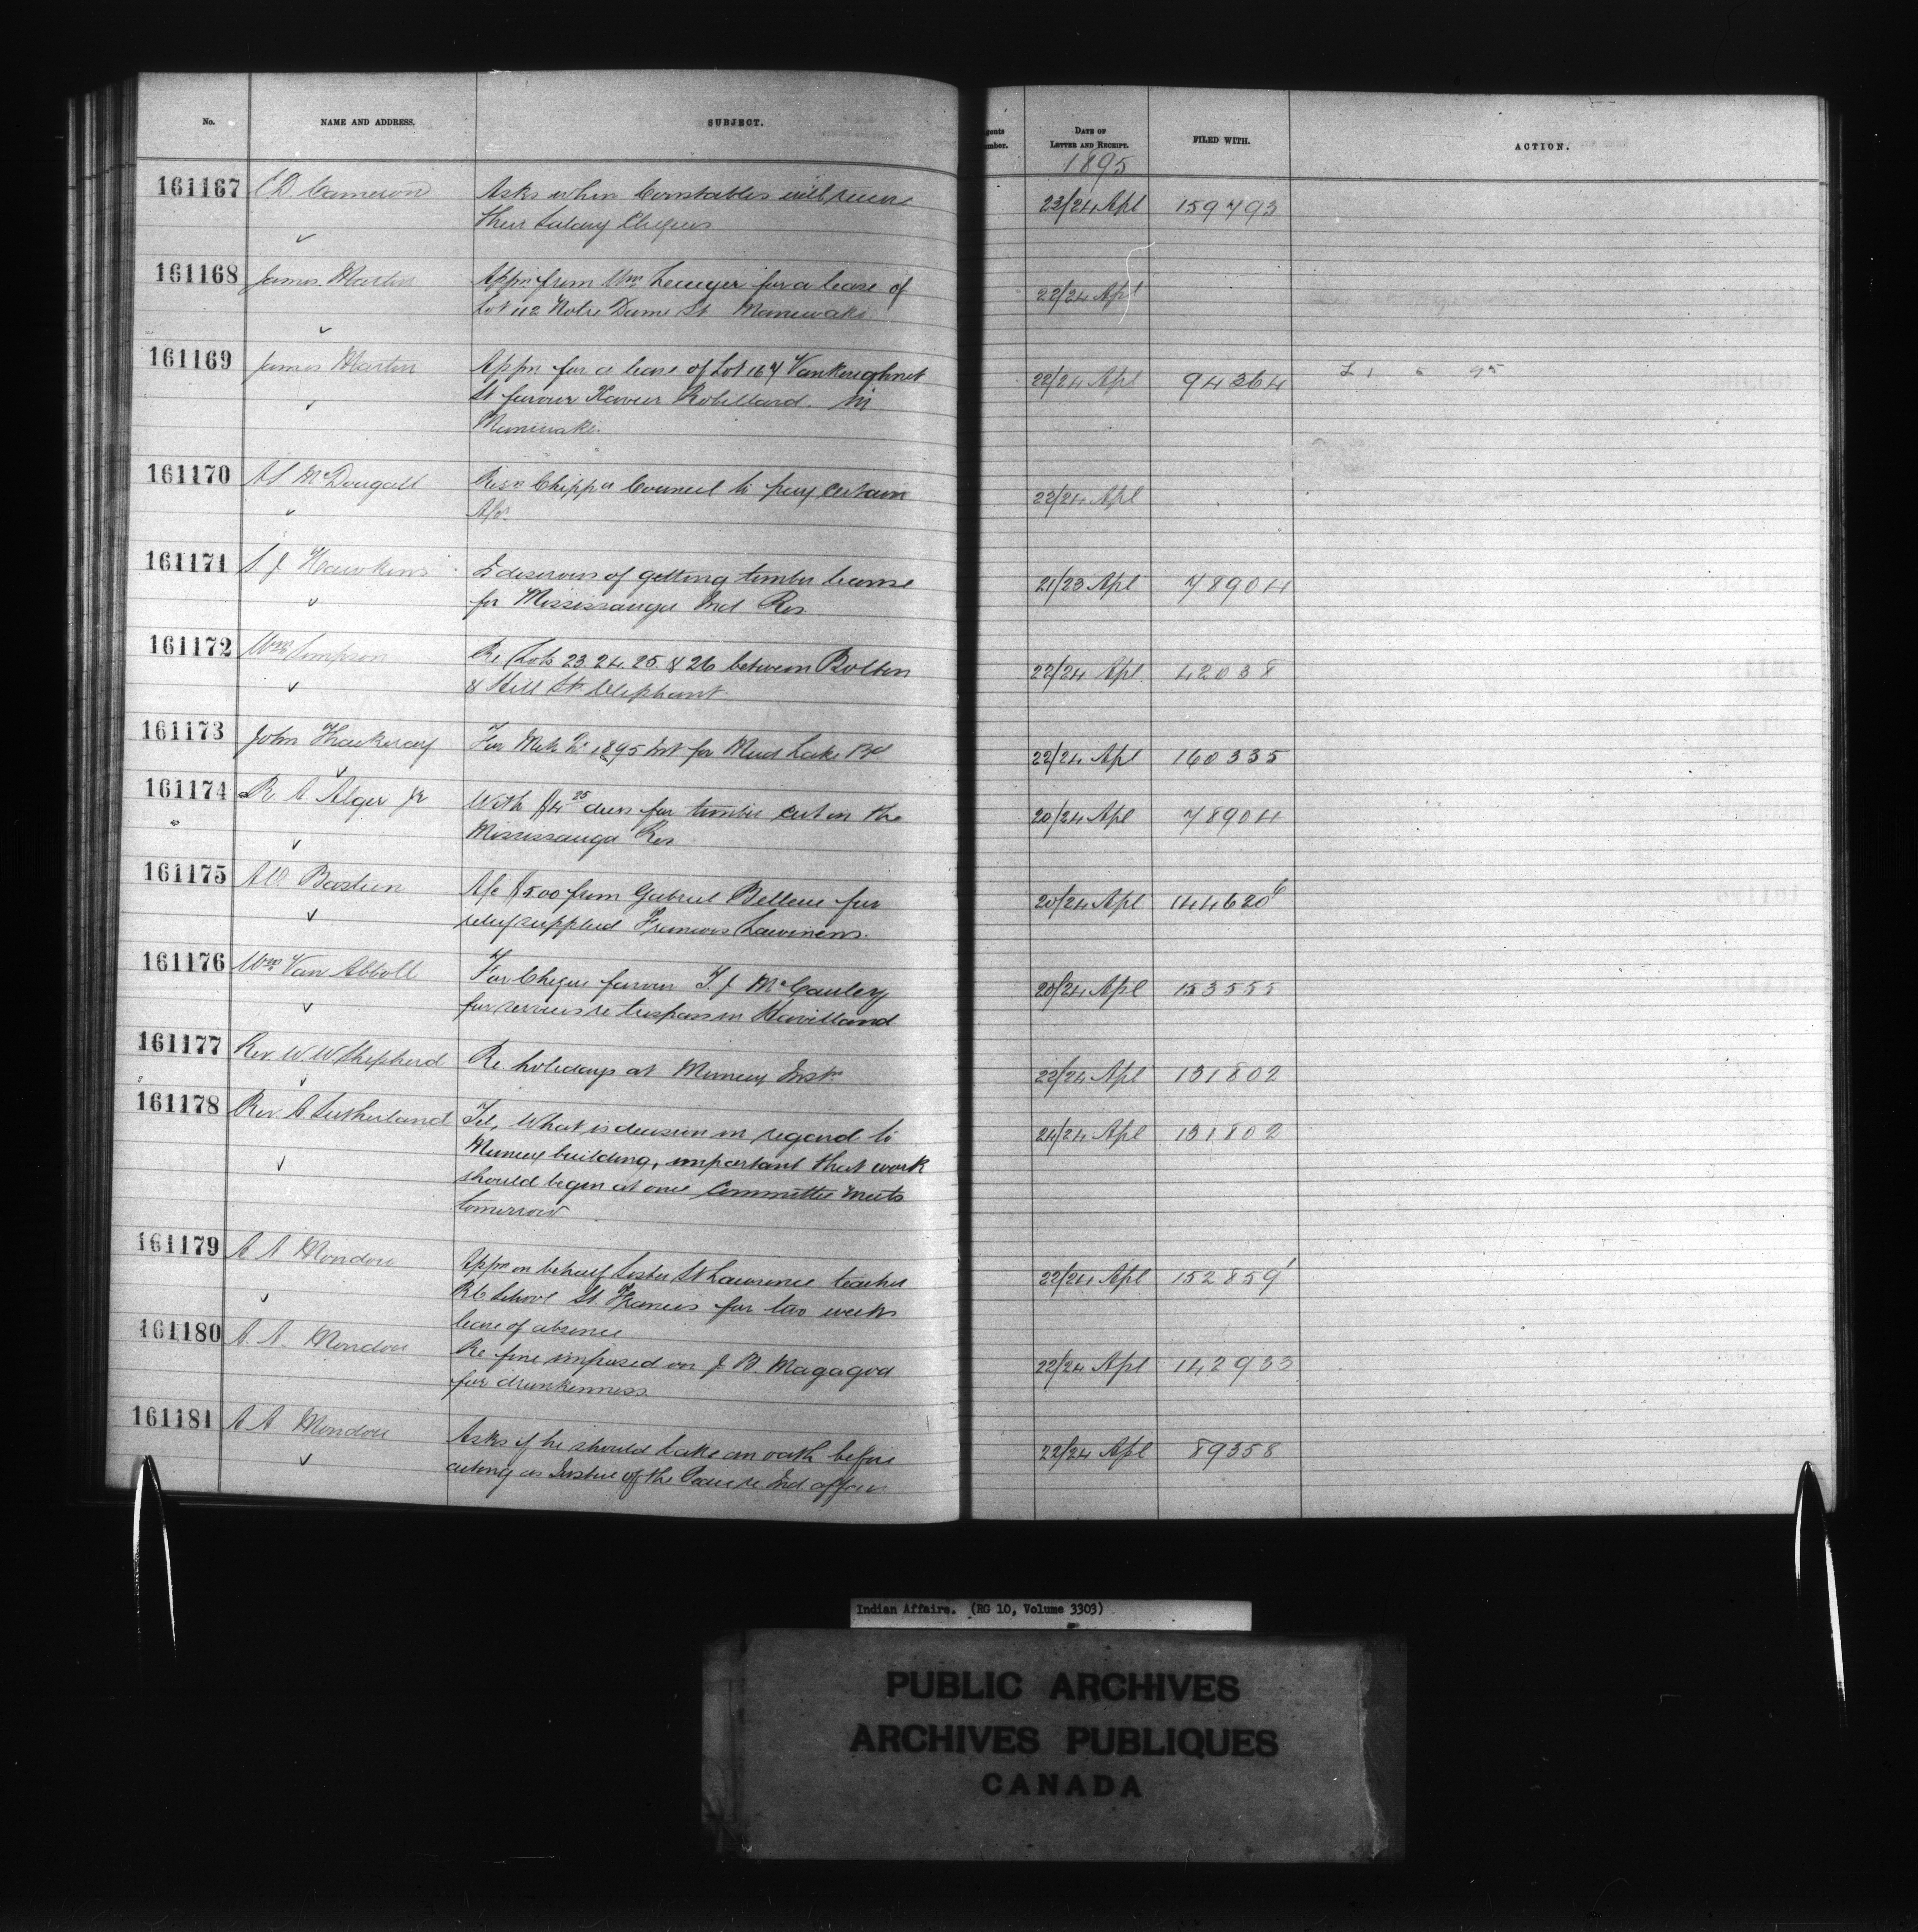 No. NAME AND ADDRESS. SUBJECT. Agents Number. DATE OF LETTER AND RECEIPT. FILED WITH. ACTION.
1895
161167 C D. Cameron Asks when Constables will receive 23/24 Apl 159793
their Salary Cheques
161168 James Martin Appn from Wm for a lease of 22/24 Apl
Lot 112 Notre Dame St Maniwaki
161169 James Martin Appn for a lease of Lot 167 Vankoughnet 22/24 Apl 94364
St favour Xavier Robillard in
Maniwaki.
161170 A S McDougall Resn Chippa Council to pay certain 23/24 Apl
A/cs.
161171 S. J Hawkins Is desirous of getting timber license 21/23 Apl 78904
for Mississauga Ind Res
161172 Wm Simpson Re Lots 23. 24. 25. & 26 between Bolton 22/24 Apl 42038
& Hill St Oliphant
161173 John Thackeray For Mch Qr 1895 Int for Mud Lake Bd 22/24 Apl 160335
161174 R A Alger Jr With $4 25 dues for timber cut on the 20/24 Apl 78904
Mississauga Res
161175 A O. Bastien A/c $5.00 from Gabriel for 20/24 Apl 144620
relief supplied Francois
161176 Wm Van Abbott For Cheque favour T. J McCauley 20/24 Apl 153555
for services re trespass in Haviland
161177 Rev W. W. Shepherd Re holidays at Muncey Instn 22/24 Apl 131802
161178 Rev A Sutherland Tel, What is decision in regard to 24/24 Apl 131802
Muncey building, important that work
should begin at once Committee meets
tomorrow
161179 A A Mondou Appn on behalf Sister St Lawrence teacher 22/24 Apl 152859
RC School St. Francis for two weeks
leave of absence
161180 A. A. Mondou Re fine imposed on J. B. Magagod 22/24 Apl 142933
for drunkenness.
161181 A A Mondou Asks if he should take an oath before 22/24 Apl 89358
acting as Justice of the Peace re Ind affairs
Indian Affairs. (RG 10, Volume 3303)
PUBLIC ARCHIVES
ARCHIVES PUBLIQUES
CANADA